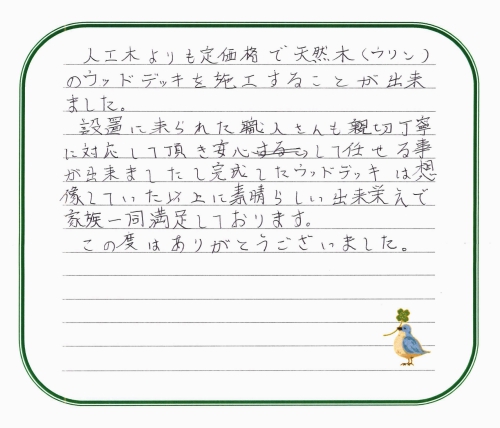 人工木よりも定価格で天然木（ウリン）
のウッドデッキを施工することが出来
ました。
設置に来られた職人さんも親切丁寧
に対応して頂き安心して任せる事
が出来ましたし完成したウッドデッキは想
像していた以上に素晴らしい出来栄えで
家族一同満足しております。
この度はありがとうございました。